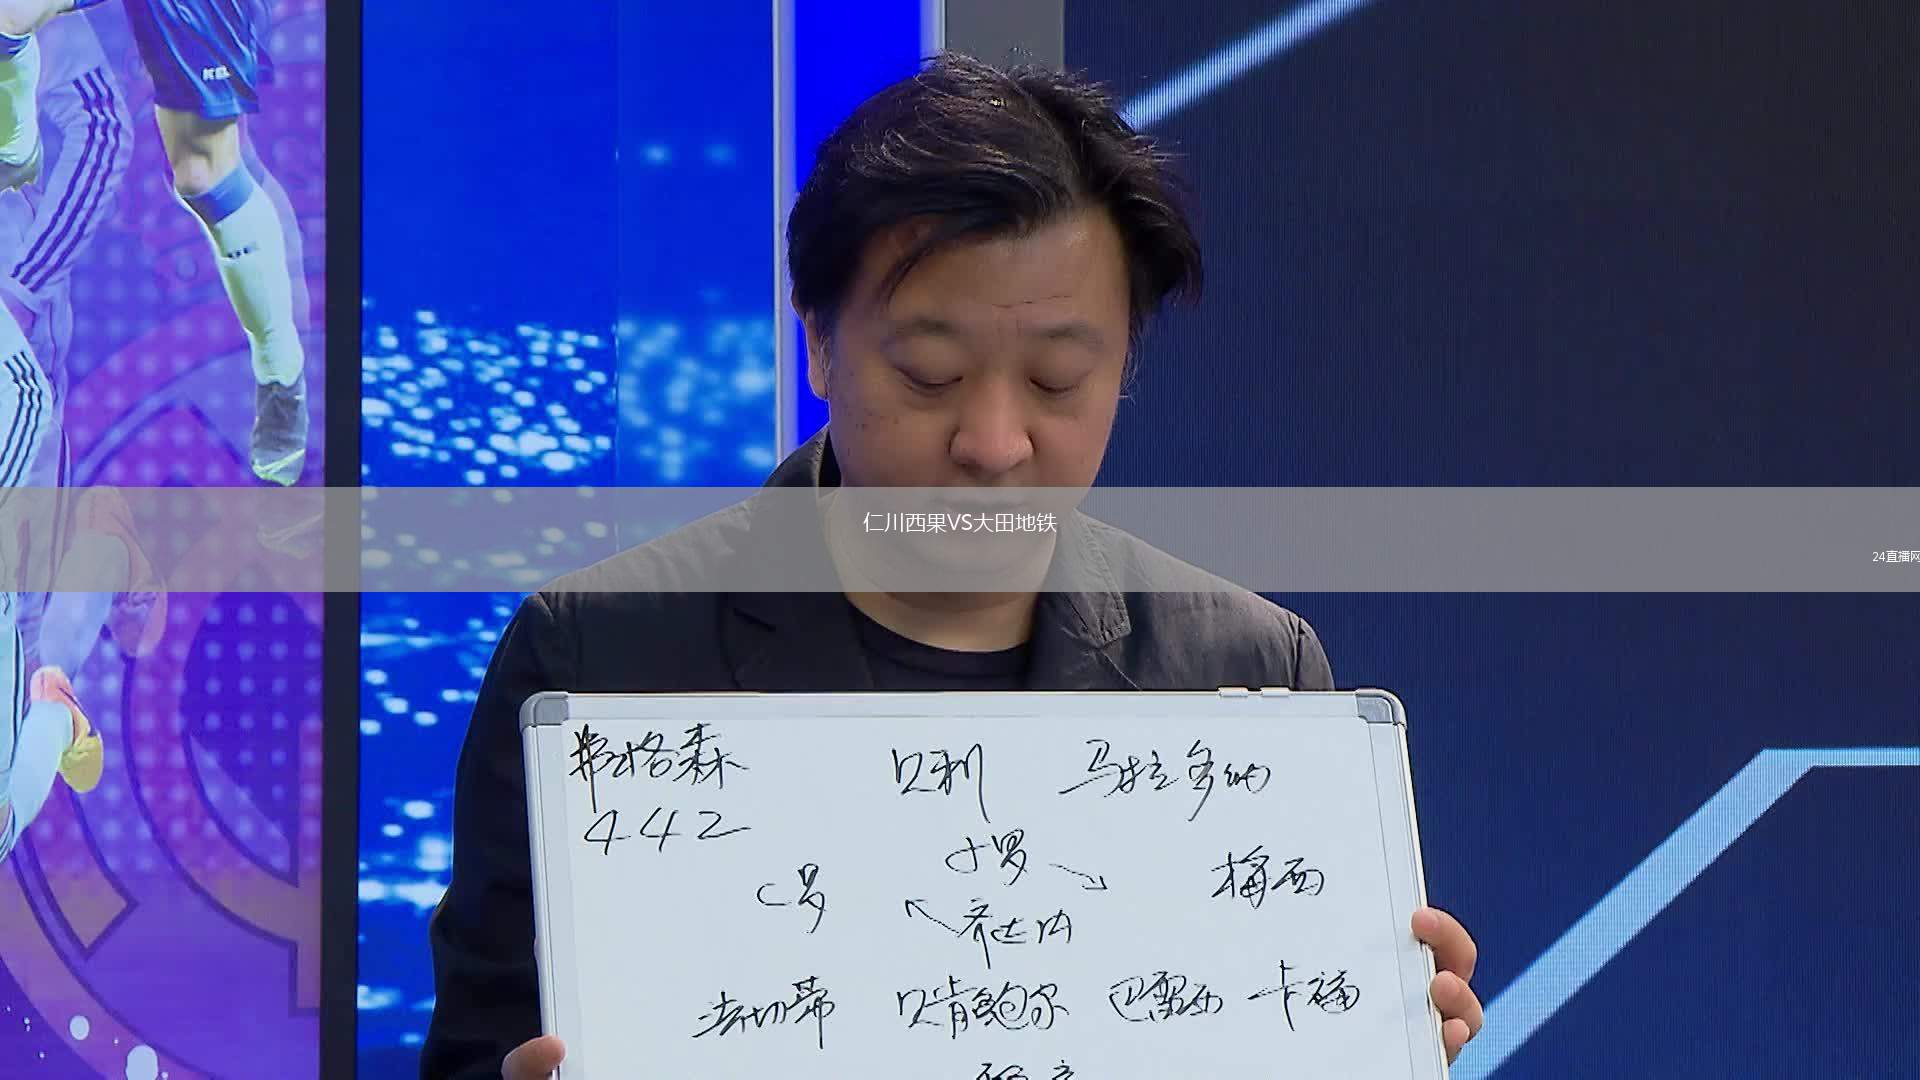 KEL
仁川西果VS大田地铁
24直播网
弗格森 贝利 马拉多纳
442
C罗 小罗 梅西
齐达内
法切蒂 贝肯鲍尔 巴雷西 卡福